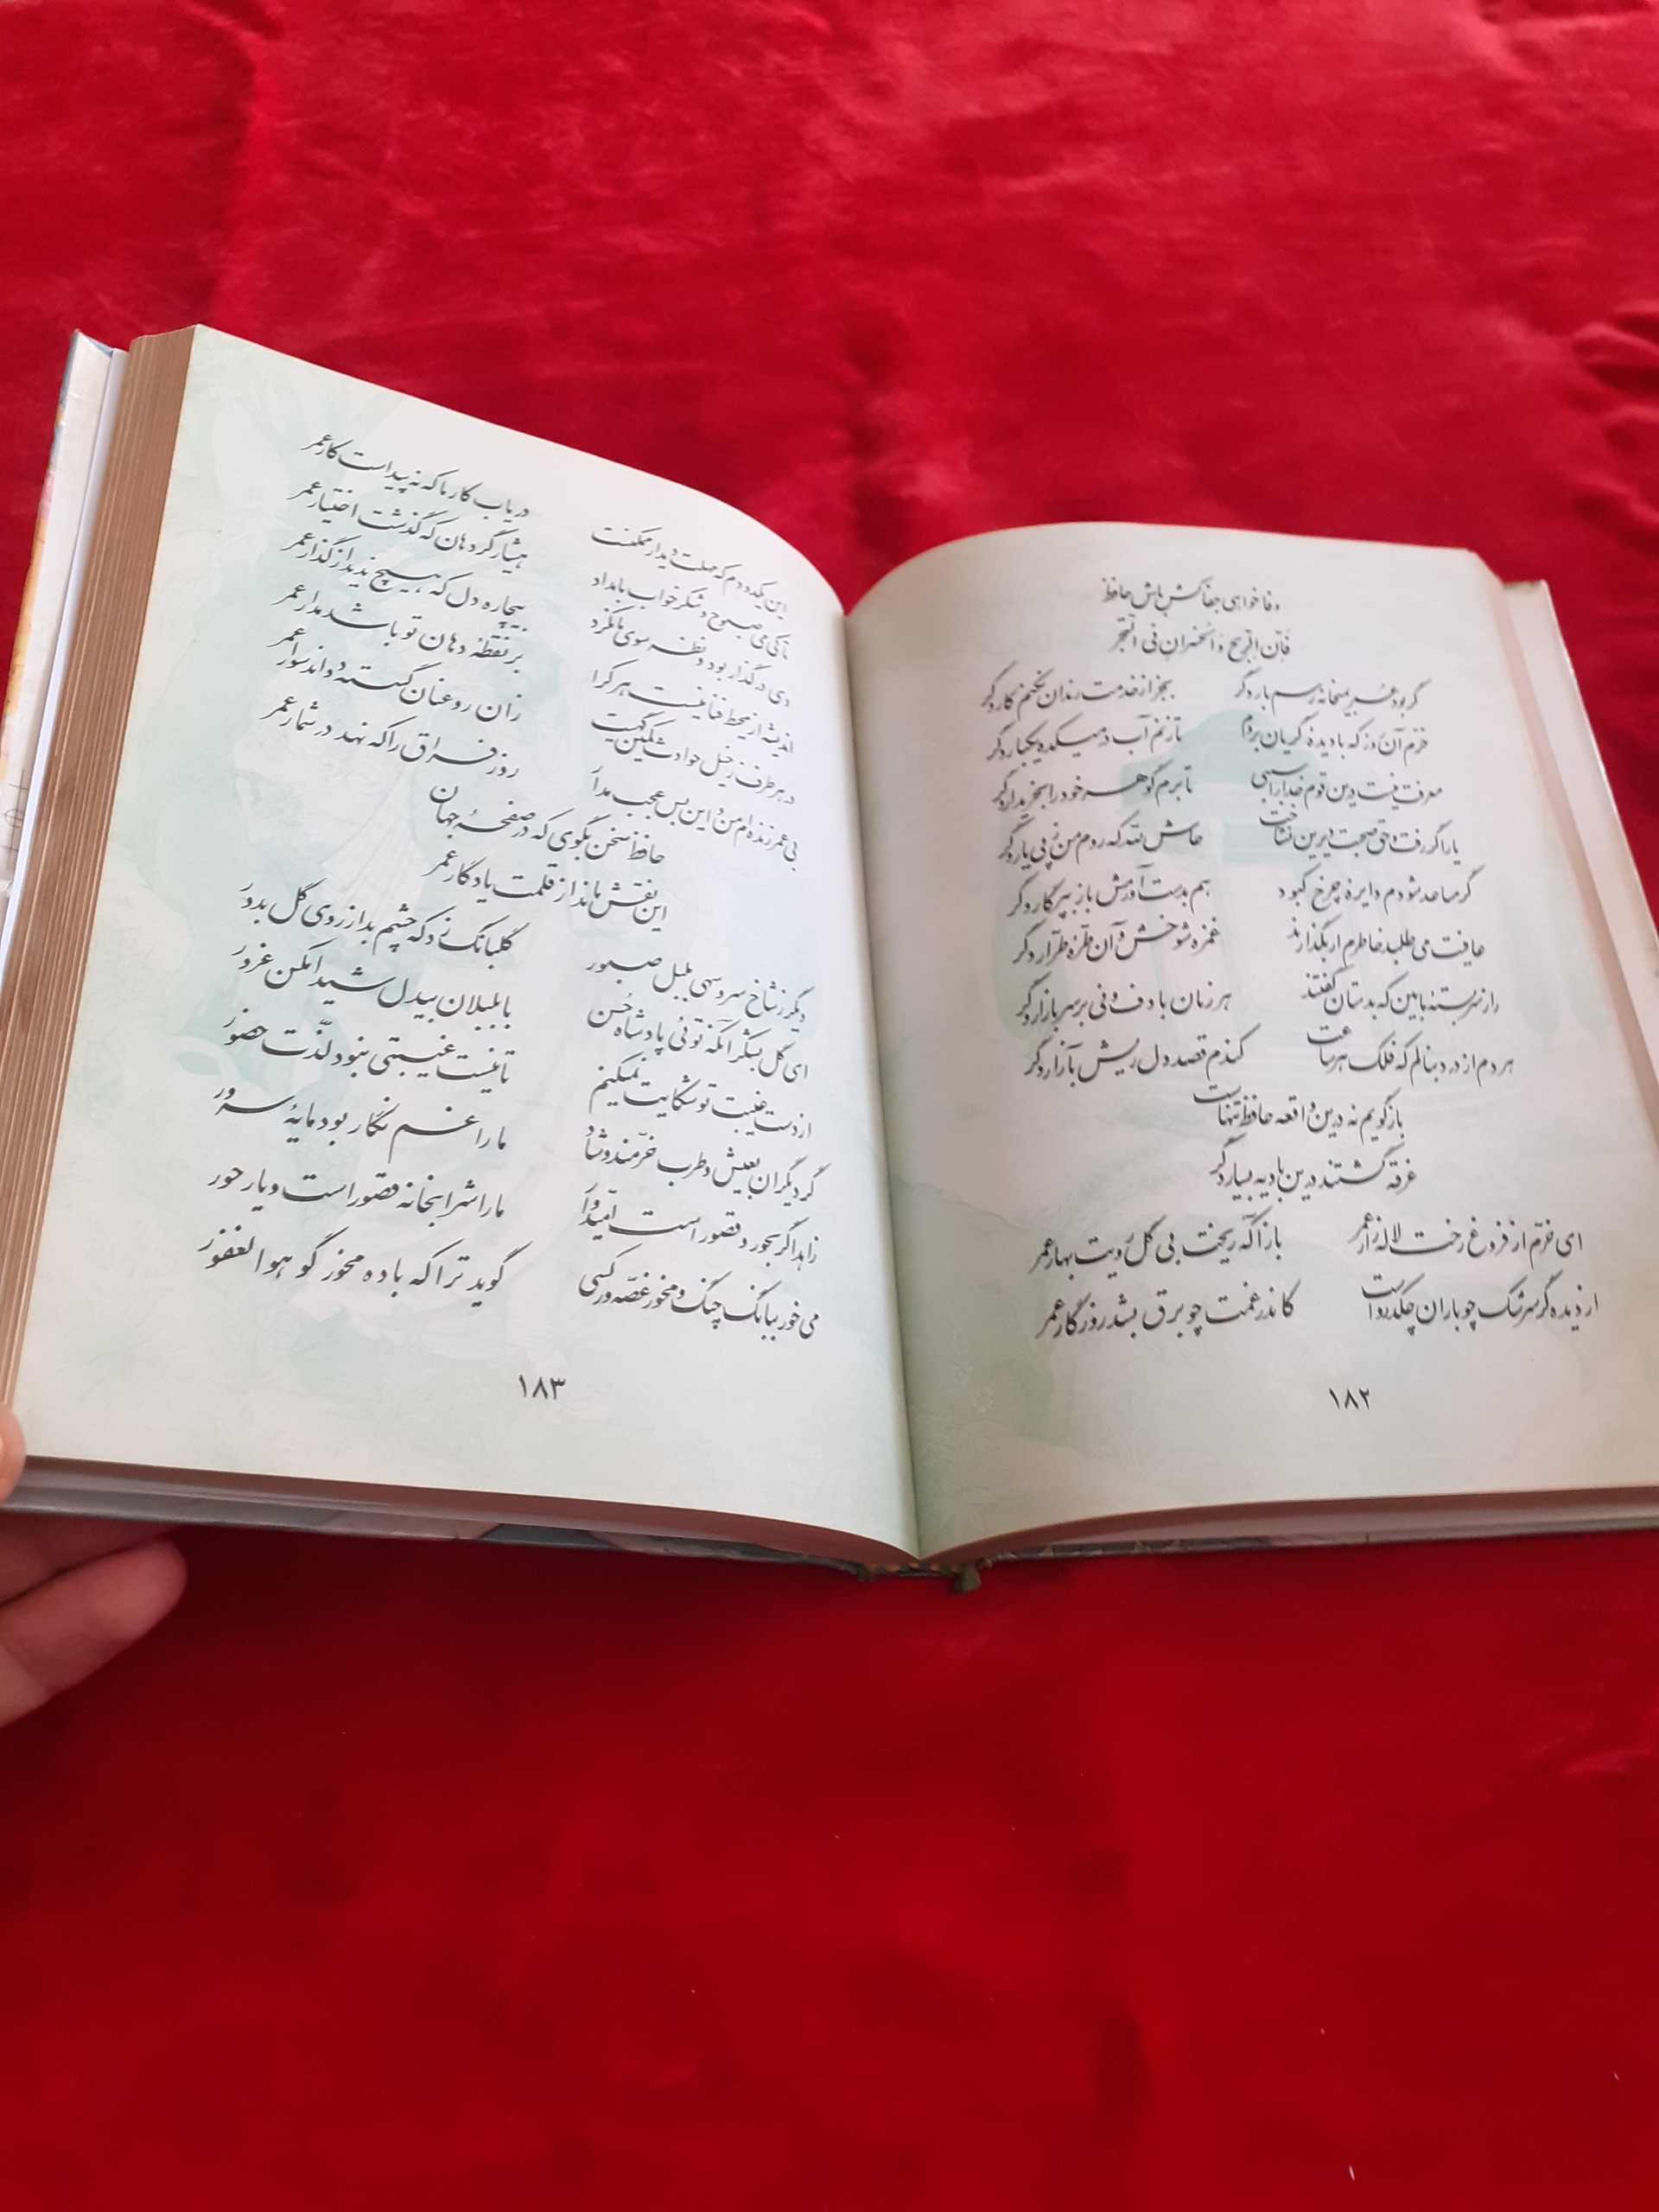 وفا خواهی جفاکش باش حافظ
فَاِنَّ الرّبحَ وَ الخُسرانَ فی التَّجر
گر بود عمر بمیخانه رسم بار دگر بجز از خدمت رندان نکنم کار دگر
خرّم آن روز که با دیدهٔ گریان بروم تا زنم آب در میکده یکبار دگر
معرفت نیست درین قوم خدا را سببی تا برم گوهر خود را بخریدار دگر
یار اگر رفت و حق صحبت دیرین نشناخت حاش لله که روم من ز پی یار دگر
گر مساعد شودم دایرهٔ چرخ کبود هم بدست آورمش باز بپرگار دگر
عافیت می طلبد خاطرم ار بگذارند غمزهٔ شوخش و آن طرّهٔ طرّار دگر
راز سربستهٔ ما بین که بدستان گفتند هر زمان با دف و نی بر سر بازار دگر
هر دم از درد بنالم که فلک هر ساعت کندم قصد دل ریش بآزار دگر
باز گویم نه درین واقعه حافظ تنهاست
غرقه گشتند درین بادیه بسیار دگر
ای خرّم از فروغ رخت لاله زار عمر باز آ که ریخت بی گل رویت بهار عمر
از دیده گر سرشک چو باران چکد رواست کاندر غمت چو برق بشد روزگار عمر
۱۸۲
این یکدو دم که مهلت دیدار ممکنست دریاب کار ما که نه پیداست کار عمر
تا کی می صبوح و شکر خواب بامداد هشیار گرد هان که گذشت اختیار عمر
دی در گذار بود و نظر سوی ما نکرد بیچاره دل که هیچ ندید از گذار عمر
اندیشه از محیط فنا نیست هر کرا بر نقطهٔ دهان تو باشد مدار عمر
در هر طرف ز خیل حوادث کمین گهیست زان رو عنان گسسته دواند سوار عمر
بی عمر زنده ام من و این بس عجب مدار روز فراق را که نهد در شمار عمر
حافظ سخن بگوی که در صفحهٔ جهان
این نقش ماند از قلمت یادگار عمر
دیگر ز شاخ سرو سهی بلبل صبور گلبانگ زد که چشم بد از روی گل بدور
ای گل بشکر آنکه توئی پادشاه حُسن با بلبلان بیدل شیدا مکن غرور
از دست غیبت تو شکایت نمیکنم تا نیست غیبتی نبود لذّت حضور
گر دیگران بعیش و طرب خرّمند و شاد ما را غم نگار بود مایهٔ سرور
زاهد اگر بحور و قصور است امیدوار ما را شرابخانه قصور است و یار حور
می خور ببانگ چنگ و مخور غصّه ور کسی گوید ترا که باده مخور گو هوالغفور
۱۸۳